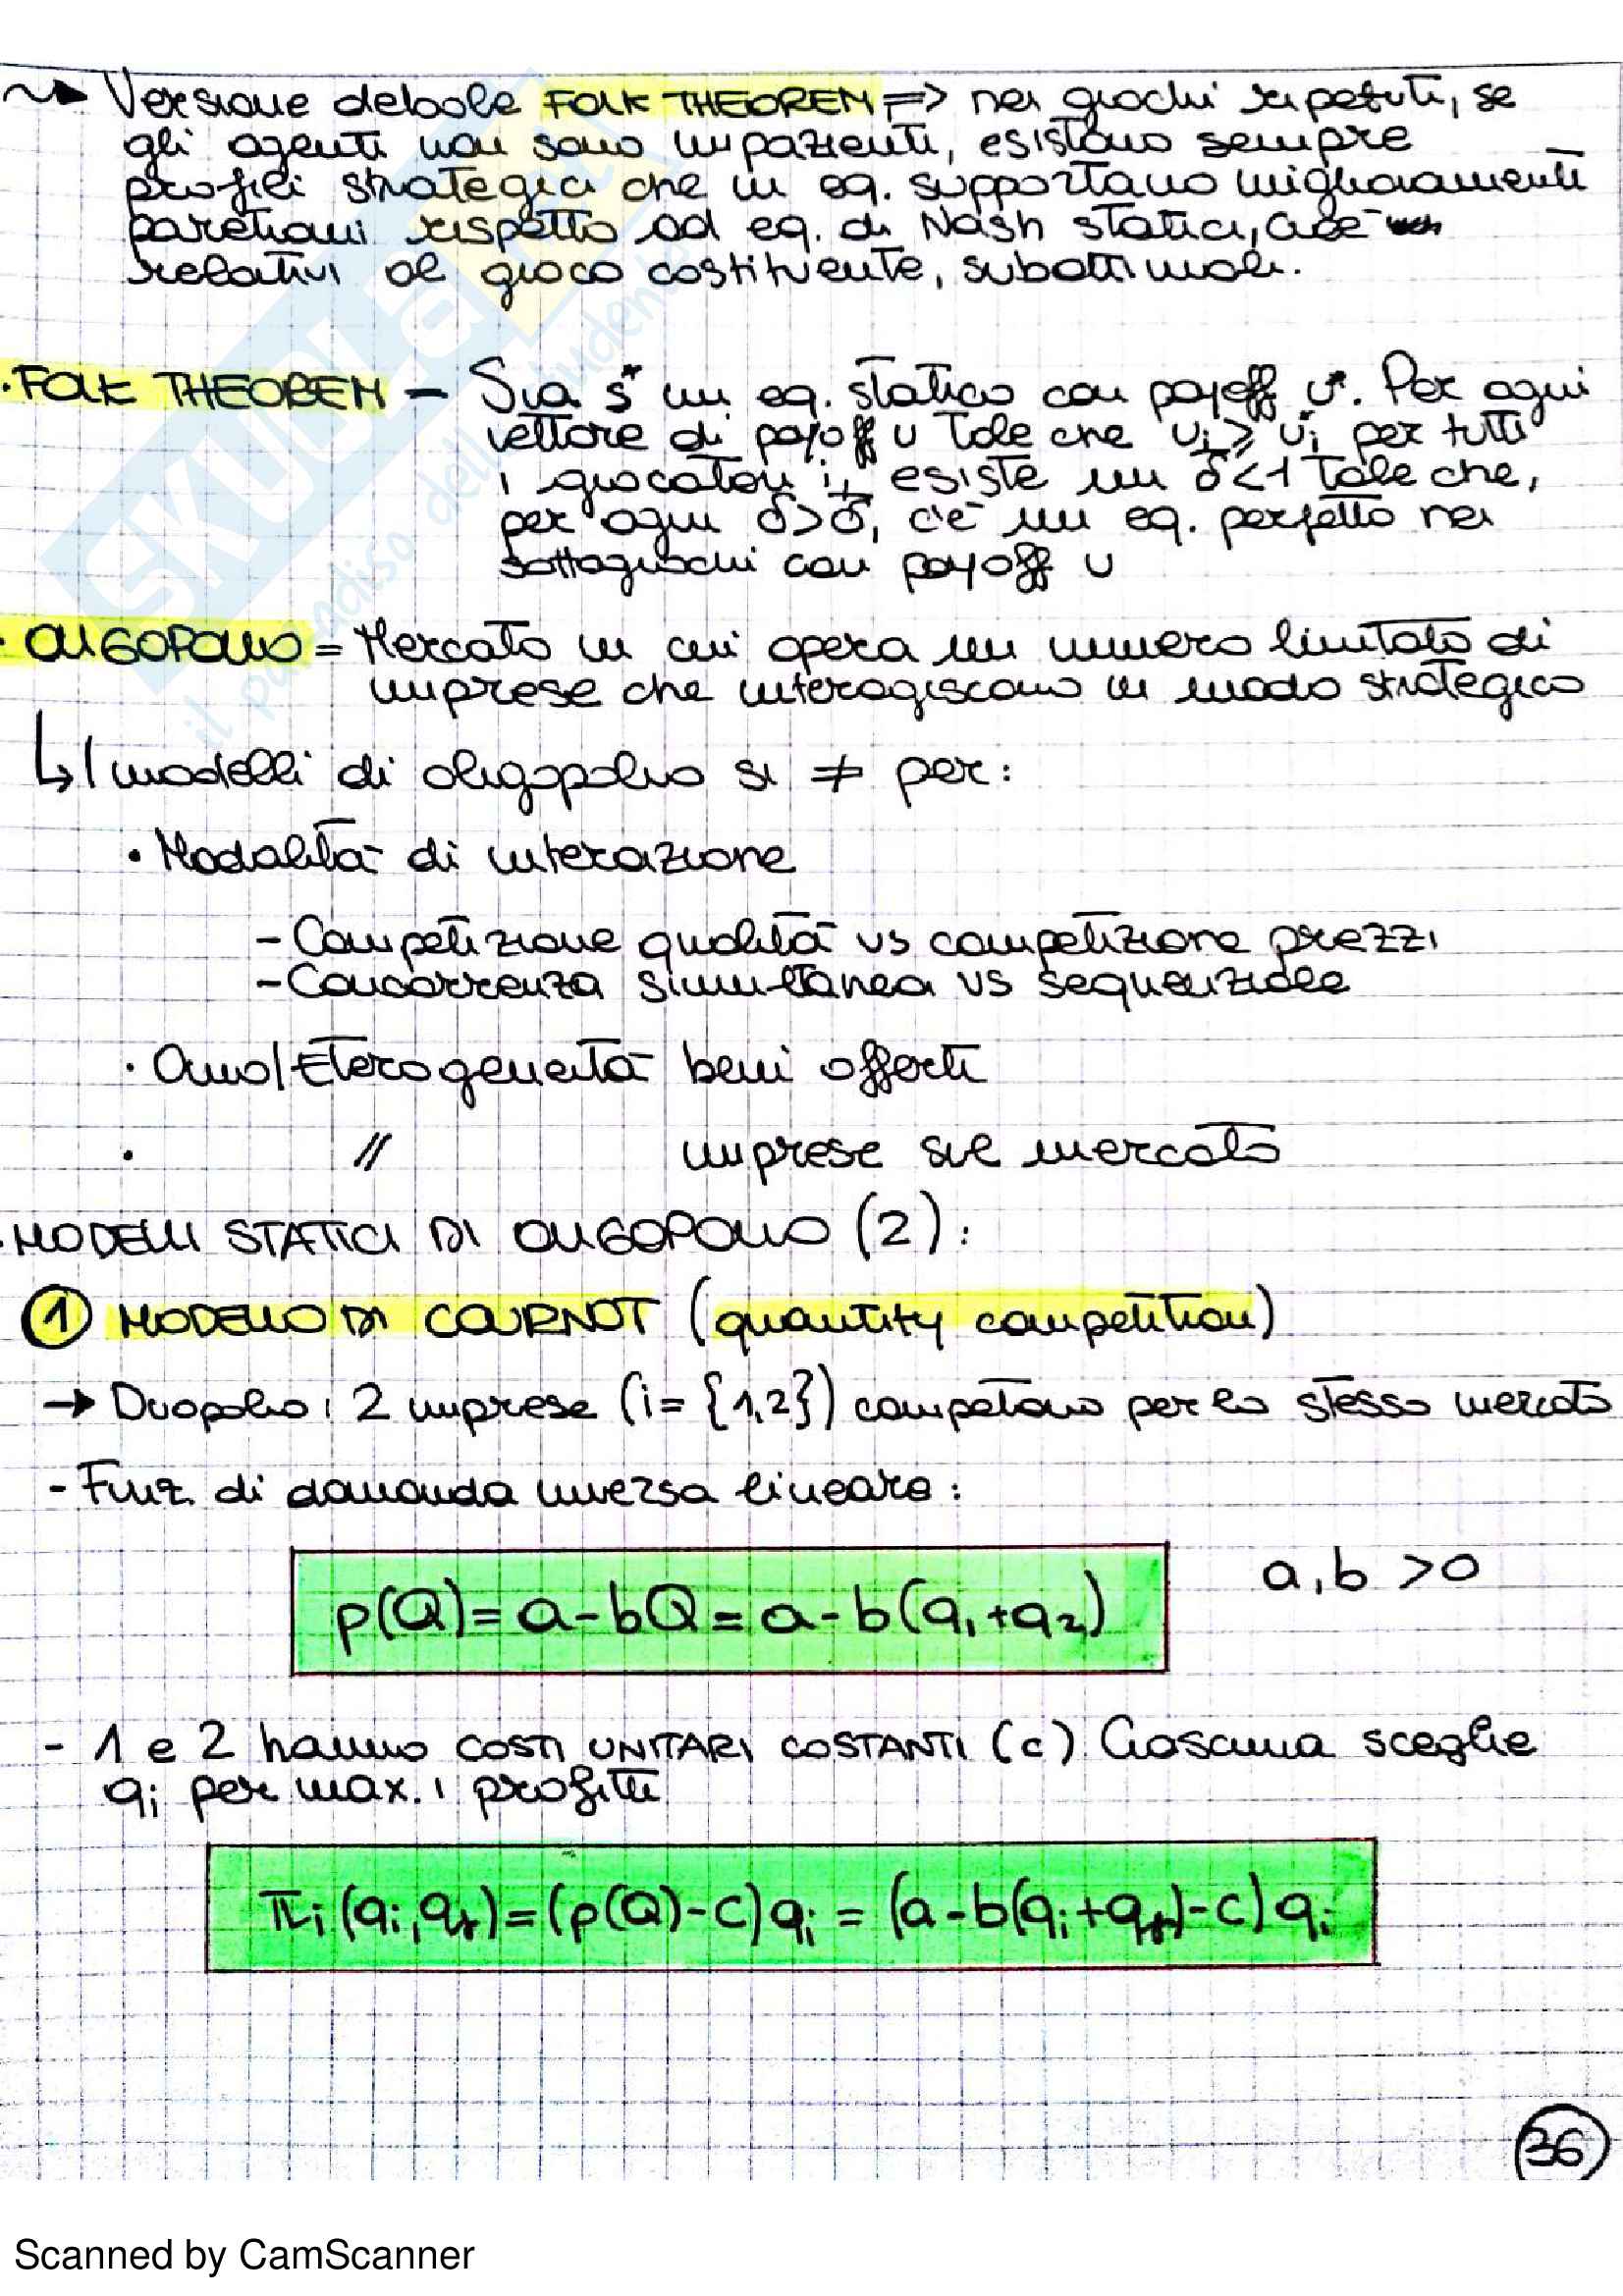 Versione debole FOLK THEOREM => nei giochi ripetuti, se
gli agenti non sono impazienti, esistono sempre
profili strategici che in eq. supportano miglioramenti
paretiani rispetto ad eq. di Nash statici, cioè
relativi al gioco costituente, subottimali.
· FOLK THEOREM – Sia s* un eq. statico con payoff u*. Per ogni
vettore di payoff u tale che ui ≥ u*i per tutti
i giocatori i, esiste un δ̄<1 tale che,
per ogni δ>δ̄, c'è un eq. perfetto nei
sottogiochi con payoff u
· OLIGOPOLIO = Mercato in cui opera un numero limitato di
imprese che interagiscono in modo strategico
↳ I modelli di oligopolio si ≠ per:
• Modalità di interazione
- Competizione qualità vs competizione prezzi
- Concorrenza simultanea vs sequenziale
· Omo/Eterogeneità beni offerti
· // imprese sul mercato
· MODELLI STATICI DI OLIGOPOLIO (2):
① MODELLO DI COURNOT (quantity competition)
→ Duopolio: 2 imprese (i={1,2}) competono per lo stesso mercato
- Funz. di domanda inversa lineare:
p(Q)= a-bQ = a-b(q1+q2) a,b >0
- 1 e 2 hanno COSTI UNITARI COSTANTI (c). Ciascuna sceglie
qi per max. i profitti
πi(qi,qj)=(p(Q)-c)qi = (a-b(qi+qj)-c)qi
36
SKUOLA.net
il paradiso dello studente
Scanned by CamScanner